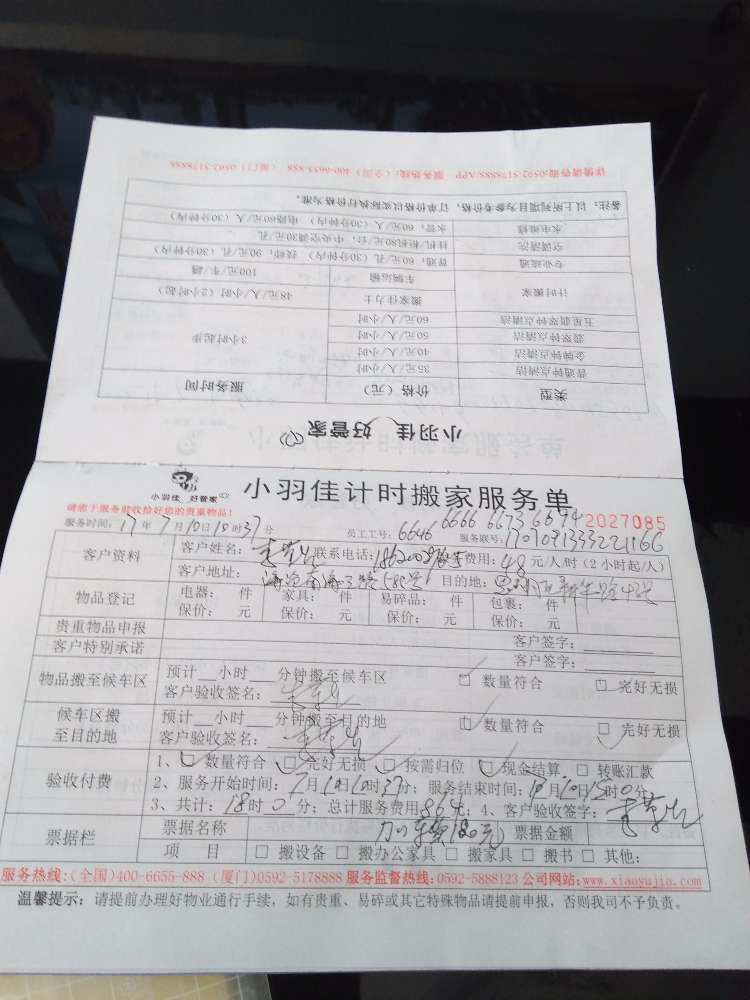 详情请咨询:0592-5178888/APP 服务热线:(全国)400-6655-888 (厦门)0592-5178888
备注:以上所列项目为参考价格,订单价格以实际执行价格为准。
水电维修 水管:60元/人/(30分钟内) 电路60元/人/(30分钟内)
空调清洗 挂机80元/台,中央空调30元/孔
专业疏通 普通:60元/孔(30分钟内) 技师:90元/孔(30分钟内)
计时搬家 车辆运输 100元/车/趟
搬家佳力士 48元/人/小时(2小时起)
五星翡翠钟点清洁 60元/人/小时
翡翠钟点清洁 50元/人/小时
金牌钟点清洁 40元/人/小时 3小时起步
普通钟点清洁 35元/人/小时
类型 价格(元) 服务时间
小羽佳 好管家
小羽佳 好管家
小羽佳计时搬家服务单
请您于服务前收拾好您的贵重物品!
服务时间:17年7月10日10时37分 员工工号:6646 6666 6673 6694 2027085
服务联号:
客户资料 客户姓名: 联系电话: 费用:48元/人/时(2小时起/人)
客户地址: 目的地:
物品登记 电器: 件 家具: 件 易碎品: 件 包裹: 件
保价: 元 保价: 元 保价: 元 保价: 元
贵重物品申报 客户签字:
客户特别承诺 客户签字:
物品搬至候车区 预计__小时__分钟搬至候车区 □ 数量符合 □ 完好无损
客户验收签名:
候车区搬至目的地 预计__小时__分钟搬至目的地 □ 数量符合 □ 完好无损
客户验收签名:
验收付费 1、□ 数量符合 □ 完好无损 □ 按需归位 □ 现金结算 □ 转账汇款
2、服务开始时间:7月10日10时37分;服务结束时间:
3、共计:18时0分;总计服务费用864元;4、客户验收签字:
票据栏 票据名称 票据金额
项 目 □ 搬设备 □ 搬办公家具 □ 搬家具 □ 搬书 □ 其他:
服务热线:(全国)400-6655-888 (厦门)0592-5178888 服务监督热线:0592-5888123 公司网站:www.xiaoyujia.com
温馨提示:请提前办理好物业通行手续,如有贵重、易碎或其它特殊物品请提前申报,否则我司不予负责。